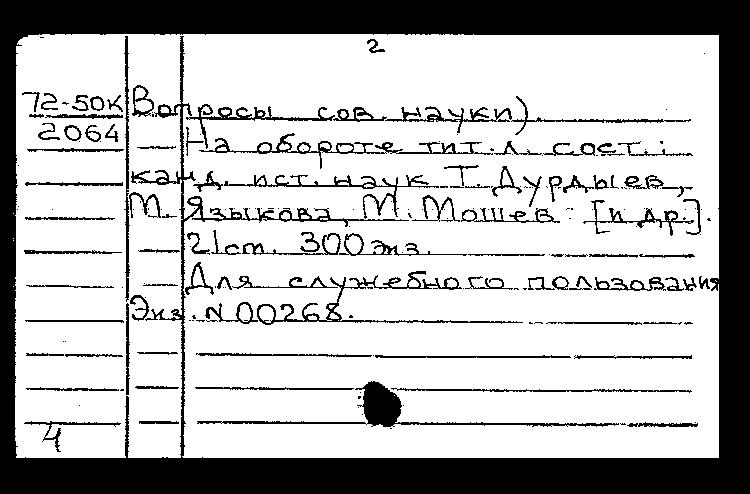 2
72-50К Вопросы сов. науки).
2064 На обороте тит. л. сост.:
канд. ист. наук Т. Дурдыев,
М. Языкова, М. Мошев [и др.].
21 ст. 300 экз.
Для служебного пользования
Экз. N 00268.
4